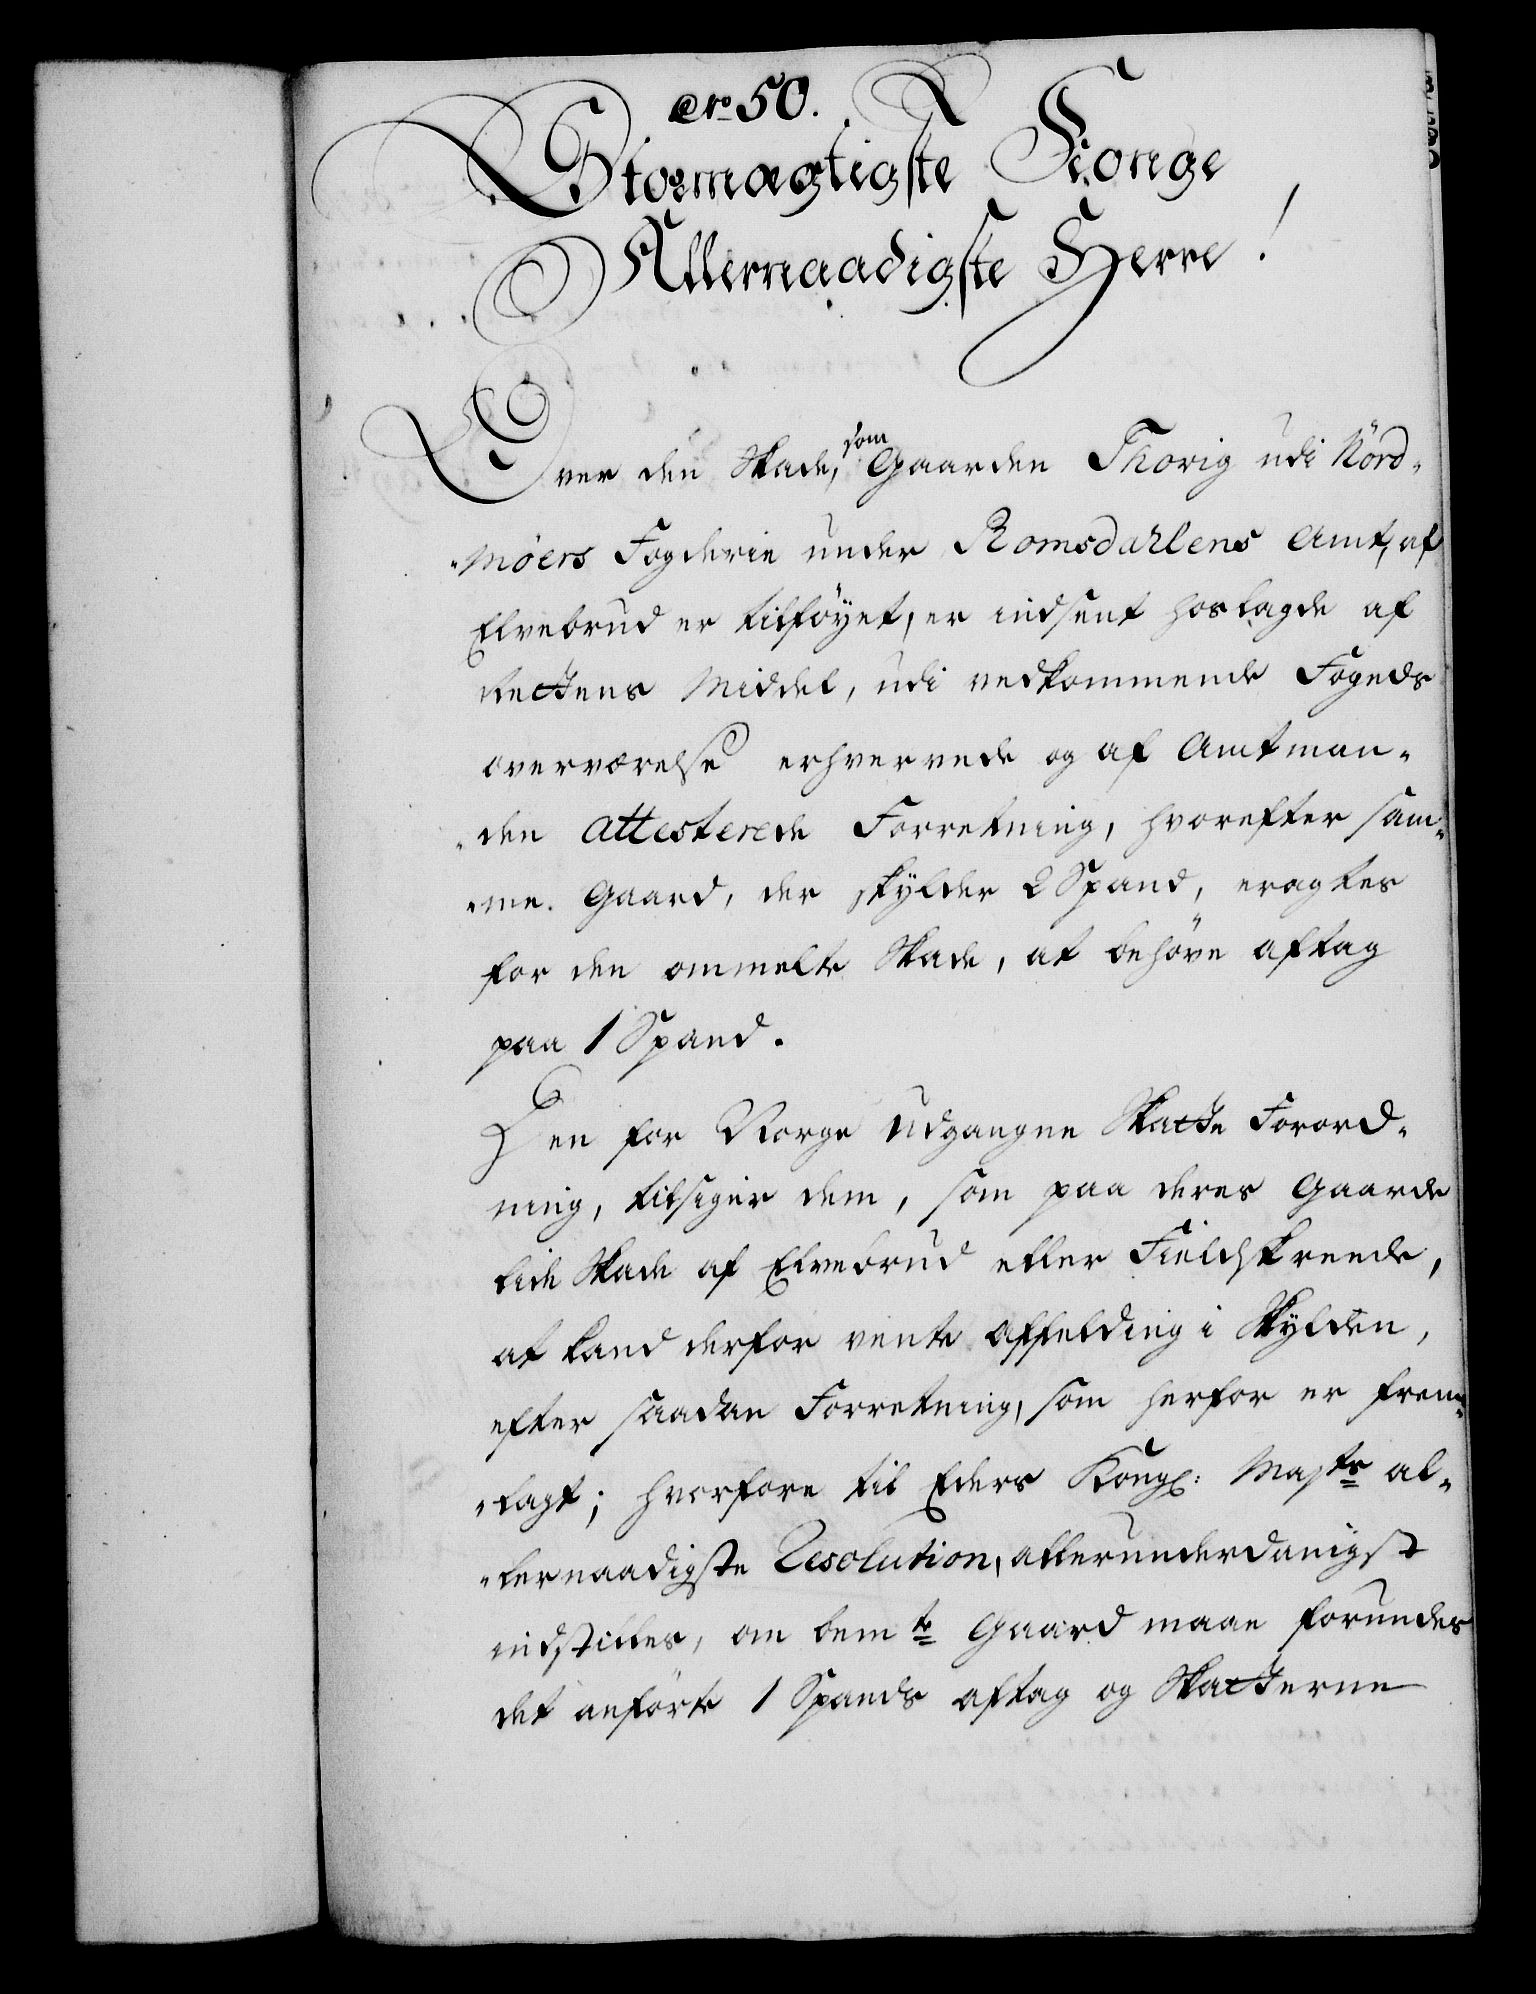 No 50.
Stormægtigste Konge
Allernaadigste Herre!
Over den Skade, som Gaarden Thorig udi Nörd-
-möers Fogderie under Romsdahlens Amt, af
Elvebrud er tilföyet, er indsent hoslagde af
Rettens Middel, udi vedkommende Fogeds
overværelse erhvervede og af Amtman-
-den attesterede Forretning, hvorefter sam-
-me Gaard, der skylder 2 Spand, eragtes
for den ommelte Skade, at behöve aftag
paa 1 Spand.
Den for Norge udgangne Skatte Forord-
ning, tilsiger dem, som paa deres Gaarde
lide Skade af Elvebrud eller Fieldskreede,
at kand derfor vente affelding i Skylden,
efter saadan Forretning, som herfor er frem-
-lagt; hvorfore til Eders Kongl: Maj.ts al-
-lernaadigste Resolution, allerunderdanigst
indstilles, om bemte Gaard maae forundes
det anförte 1 Spands aftag og Skatterne